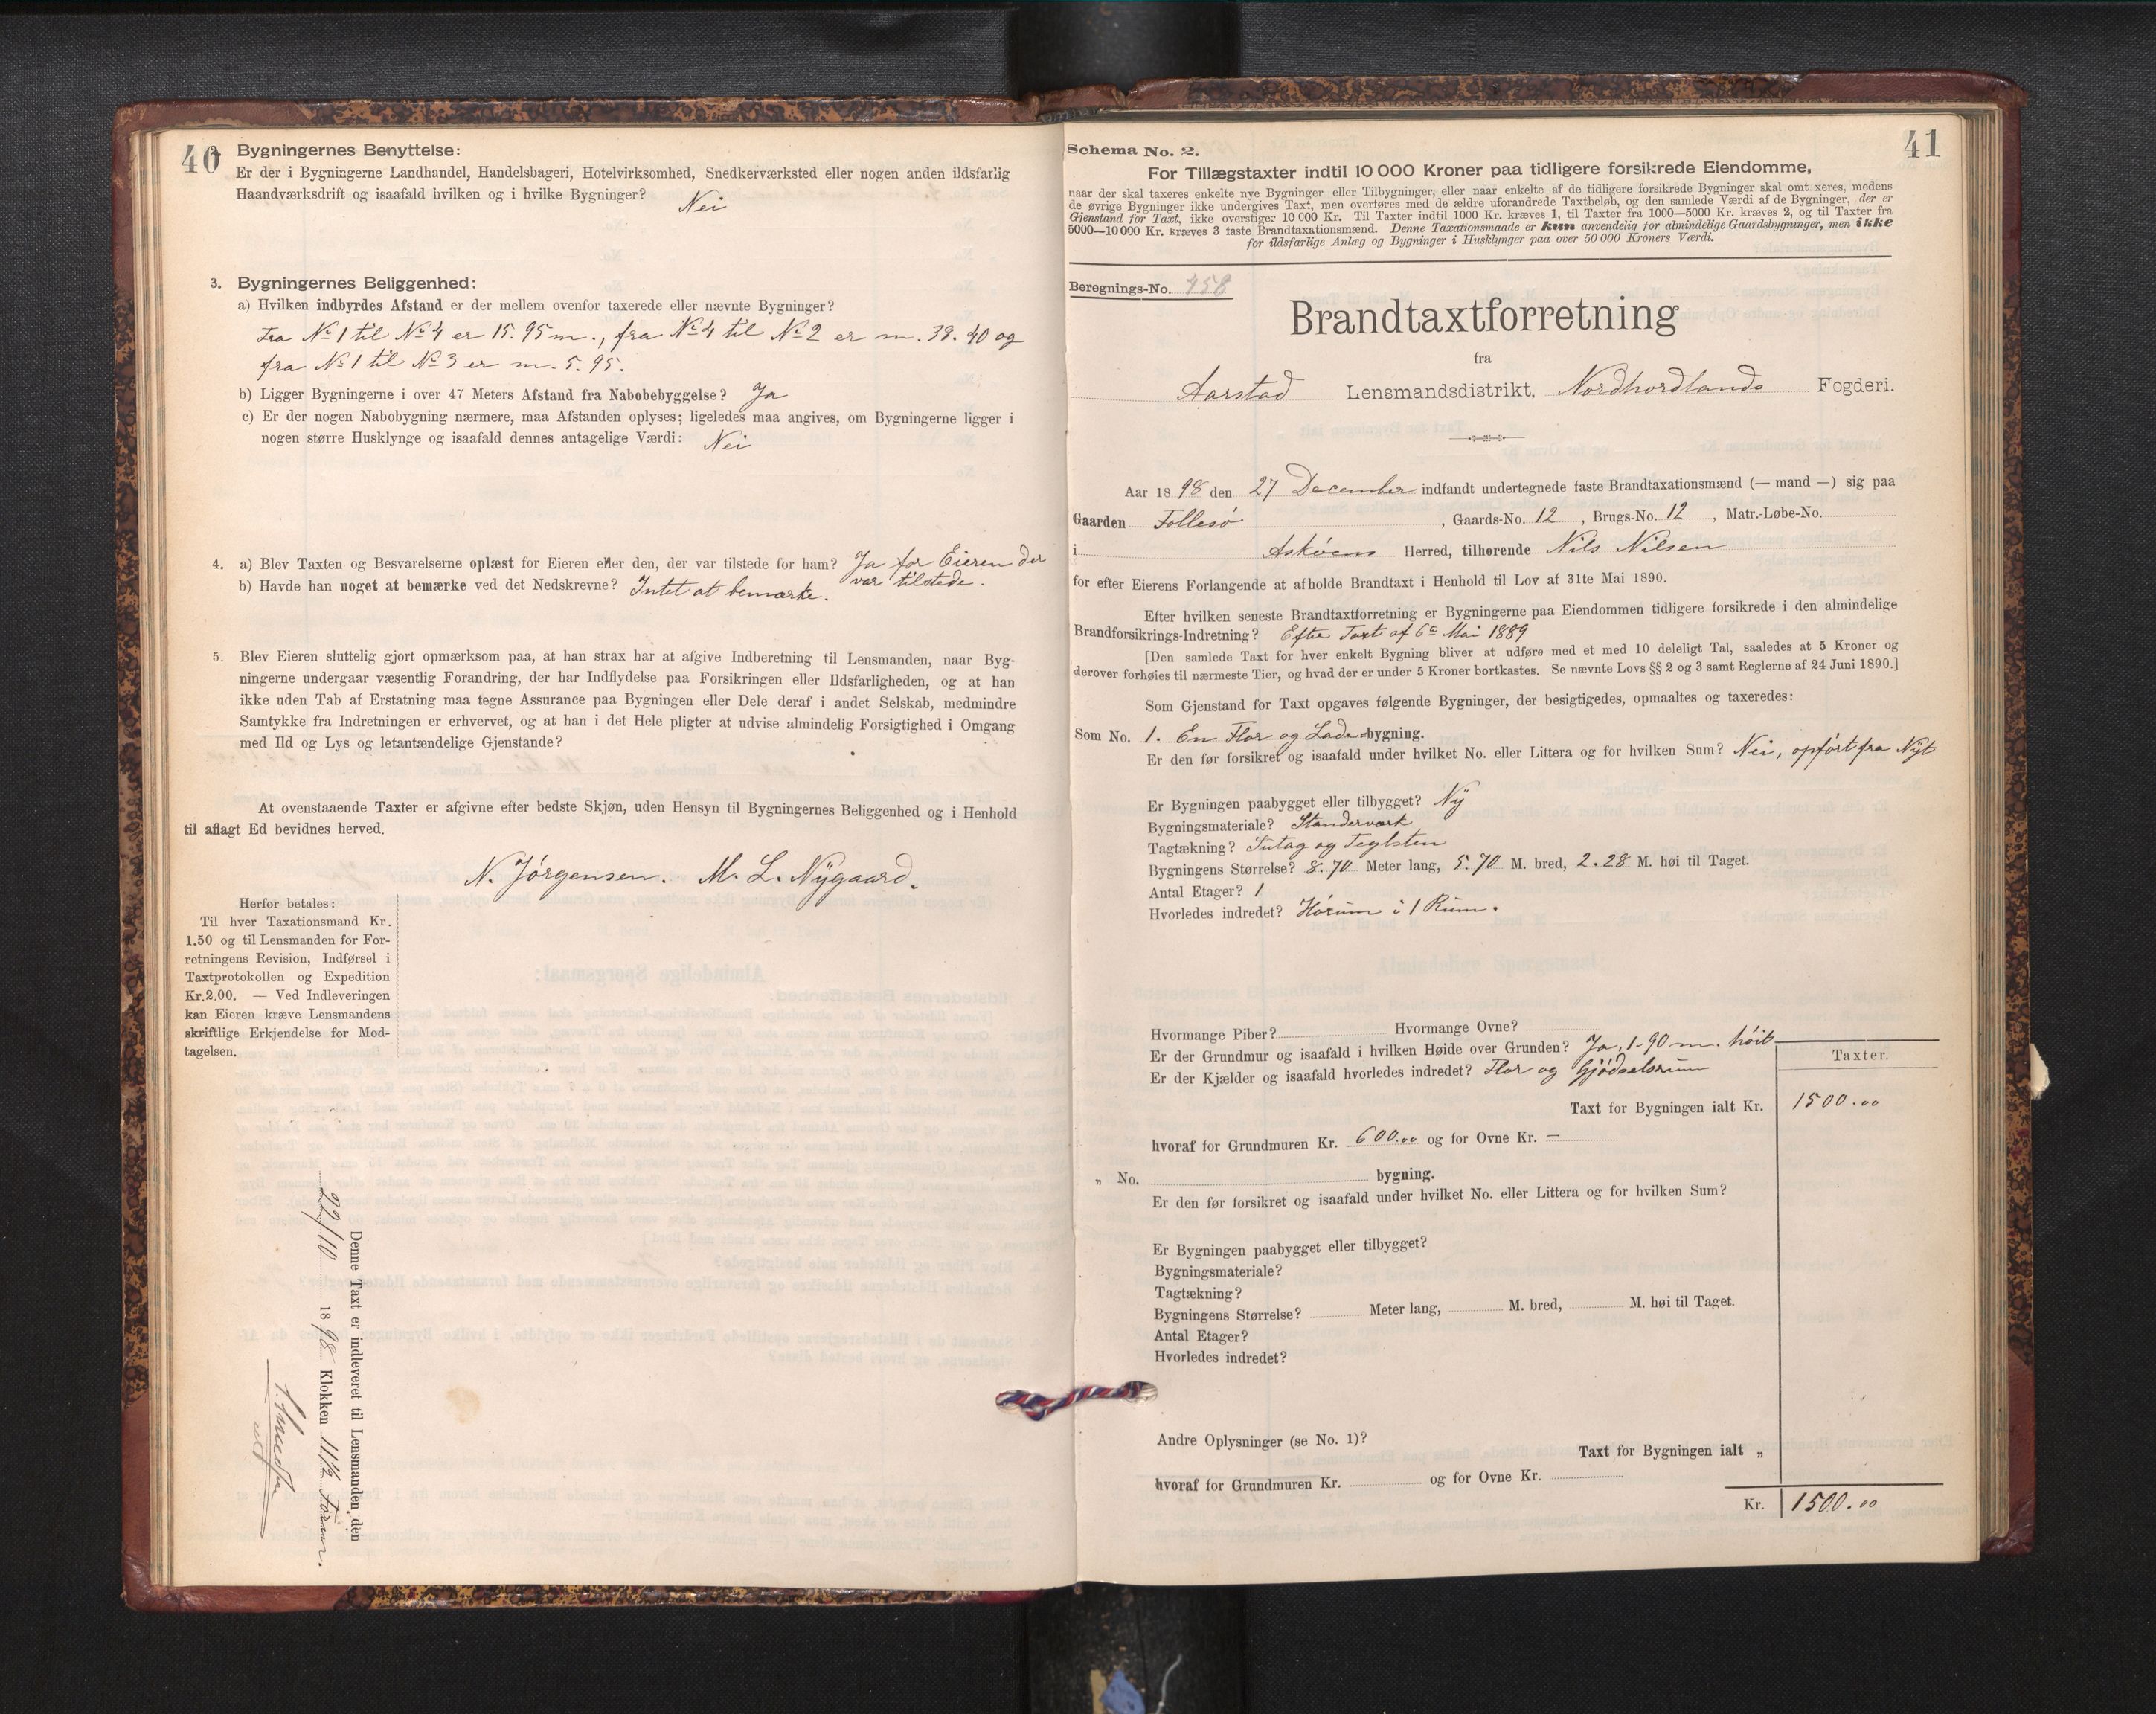 40
Bygningernes Benyttelse:
Er der i Bygningerne Landhandel, Handelsbageri, Hotelvirksomhed, Snedkerværksted eller nogen anden ildsfarlig
Haandværksdrift og isaafald hvilken og i hvilke Bygninger? Nei
3. Bygningernes Beliggenhed:
a) Hvilken indbyrdes Afstand er der mellem ovenfor taxerede eller nævnte Bygninger?
Fra No 1 til No 4 er 15.95 m., fra No 4 til No 2 er m. 38.40 og
fra No 1 til No 3 er m. 5.95.
b) Ligger Bygningerne i over 47 Meters Afstand fra Nabobebyggelse? Ja
c) Er der nogen Nabobygning nærmere, maa Afstanden oplyses; ligeledes maa angives, om Bygningerne ligger i
nogen større Husklynge og isaafald dennes antagelige Værdi: Nei
4. a) Blev Taxten og Besvarelserne oplæst for Eieren eller den, der var tilstede for ham? Ja for Eieren der
var tilstede.
b) Havde han noget at bemærke ved det Nedskrevne? Intet at bemærke.
5. Blev Eieren sluttelig gjort opmærksom paa, at han strax har at afgive Indberetning til Lensmanden, naar Byg-
ningerne undergaar væsentlig Forandring, der har Indflydelse paa Forsikringen eller Ildsfarligheden, og at han
ikke uden Tab af Erstatning maa tegne Assurance paa Bygningen eller Dele deraf i andet Selskab, medmindre
Samtykke fra Indretningen er erhvervet, og at han i det Hele pligter at udvise almindelig Forsigtighed i Omgang
med Ild og Lys og letantændelige Gjenstande?
At ovenstaaende Taxter er afgivne efter bedste Skjøn, uden Hensyn til Bygningernes Beliggenhed og i Henhold
til aflagt Ed bevidnes herved.
N. Jørgensen. M. L. Nygaard.
Herfor betales:
Til hver Taxationsmand Kr.
1.50 og til Lensmanden for For-
retningens Revision, Indførsel i
Taxtprotokollen og Expedition
Kr. 2.00. — Ved Indleveringen
kan Eieren kræve Lensmandens
skriftlige Erkjendelse for Mod-
tagelsen.
Denne Taxt er indleveret til Lensmanden den
22/10 1898 Klokken 11½ Form.
41
Schema No. 2.
For Tillægstaxter indtil 10 000 Kroner paa tidligere forsikrede Eiendomme,
naar der skal taxeres enkelte nye Bygninger eller Tilbygninger, eller naar enkelte af de tidligere forsikrede Bygninger skal omt xeres, medens
de øvrige Bygninger ikke undergives Taxt, men overføres med de ældre uforandrede Taxtbeløb, og den samlede Værdi af de Bygninger, der er
Gjenstand for Taxt, ikke overstiger 10 000 Kr. Til Taxter indtil 1000 Kr. kræves 1, til Taxter fra 1000—5000 Kr. kræves 2, og til Taxter fra
5000—10 000 Kr. kræves 3 faste Brandtaxationsmænd. Denne Taxationsmaade er kun anvendelig for almindelige Gaardsbygninger, men ikke
for ildsfarlige Anlæg og Bygninger i Husklynger paa over 50 000 Kroners Værdi.
Beregnings-No. 458
Brandtaxtforretning
fra
Aarstad Lensmandsdistrikt, Nordhordlands Fogderi.
Aar 1898 den 27 December indfandt undertegnede faste Brandtaxationsmænd (— mand —) sig paa
Gaarden Follesø, Gaards-No. 12, Brugs-No. 12, Matr.-Løbe-No.
i Askøens Herred, tilhørende Nils Nilsen
for efter Eierens Forlangende at afholde Brandtaxt i Henhold til Lov af 31te Mai 1890.
Efter hvilken seneste Brandtaxtforretning er Bygningerne paa Eiendommen tidligere forsikrede i den almindelige
Brandforsikrings-Indretning? Efter Taxt af 6te Mai 1889
[Den samlede Taxt for hver enkelt Bygning bliver at udføre med et med 10 deleligt Tal, saaledes at 5 Kroner og
derover forhøies til nærmeste Tier, og hvad der er under 5 Kroner bortkastes. Se nævnte Lovs §§ 2 og 3 samt Reglerne af 24 Juni 1890.]
Som Gjenstand for Taxt opgaves følgende Bygninger, der besigtigedes, opmaaltes og taxeredes:
Som No. 1. En Flor og Lade-bygning.
Er den før forsikret og isaafald under hvilket No. eller Littera og for hvilken Sum? Nei, opført fra Nyt
Er Bygningen paabygget eller tilbygget? Ny
Bygningsmateriale? Standerværk
Tagtækning? Sutag og Teglsten
Bygningens Størrelse? 8.70 Meter lang, 5.70 M. bred, 2.28 M. høi til Taget.
Antal Etager? 1
Hvorledes indredet? Hørum i 1 Rum.
Hvormange Piber? Hvormange Ovne?
Er der Grundmur og isaafald i hvilken Høide over Grunden? Ja, 1.90 m. høit
Er der Kjælder og isaafald hvorledes indredet? Flor og Gjødselsrum
Taxter.
Taxt for Bygningen ialt Kr. 1500.00
hvoraf for Grundmuren Kr. 600.00 og for Ovne Kr. —
„ No. bygning.
Er den før forsikret og isaafald under hvilket No. eller Littera og for hvilken Sum?
Er Bygningen paabygget eller tilbygget?
Bygningsmateriale?
Tagtækning?
Bygningens Størrelse? Meter lang, M. bred, M. høi til Taget.
Antal Etager?
Hvorledes indredet?
Andre Oplysninger (se No. 1)?
Taxt for Bygningen ialt „
hvoraf for Grundmuren Kr. og for Ovne Kr.
Kr. 1500.00